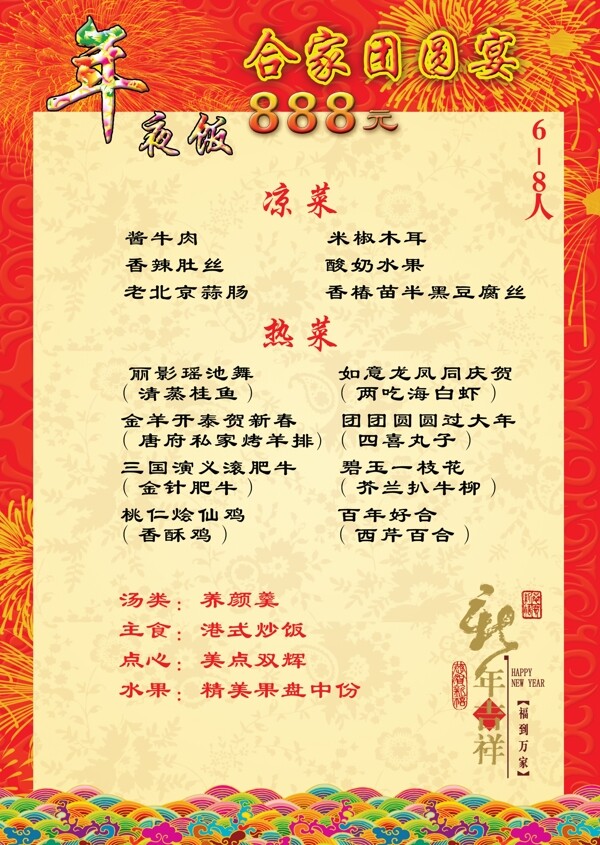 年夜饭
合家团圆宴
888元
6-8人
凉菜
酱牛肉 米椒木耳
香辣肚丝 酸奶水果
老北京蒜肠 香椿苗半黑豆腐丝
热菜
丽影瑶池舞 如意龙凤同庆贺
（清蒸桂鱼） （两吃海白虾）
金羊开泰贺新春 团团圆圆过大年
（唐府私家烤羊排） （四喜丸子）
三国演义滚肥牛 碧玉一枝花
（金针肥牛） （芥兰扒牛柳）
桃仁烩仙鸡 百年好合
（香酥鸡） （西芹百合）
汤类：养颜羹
主食：港式炒饭
点心：美点双辉
水果：精美果盘中份
新年吉祥
HAPPY
NEW YEAR
【福到万家】